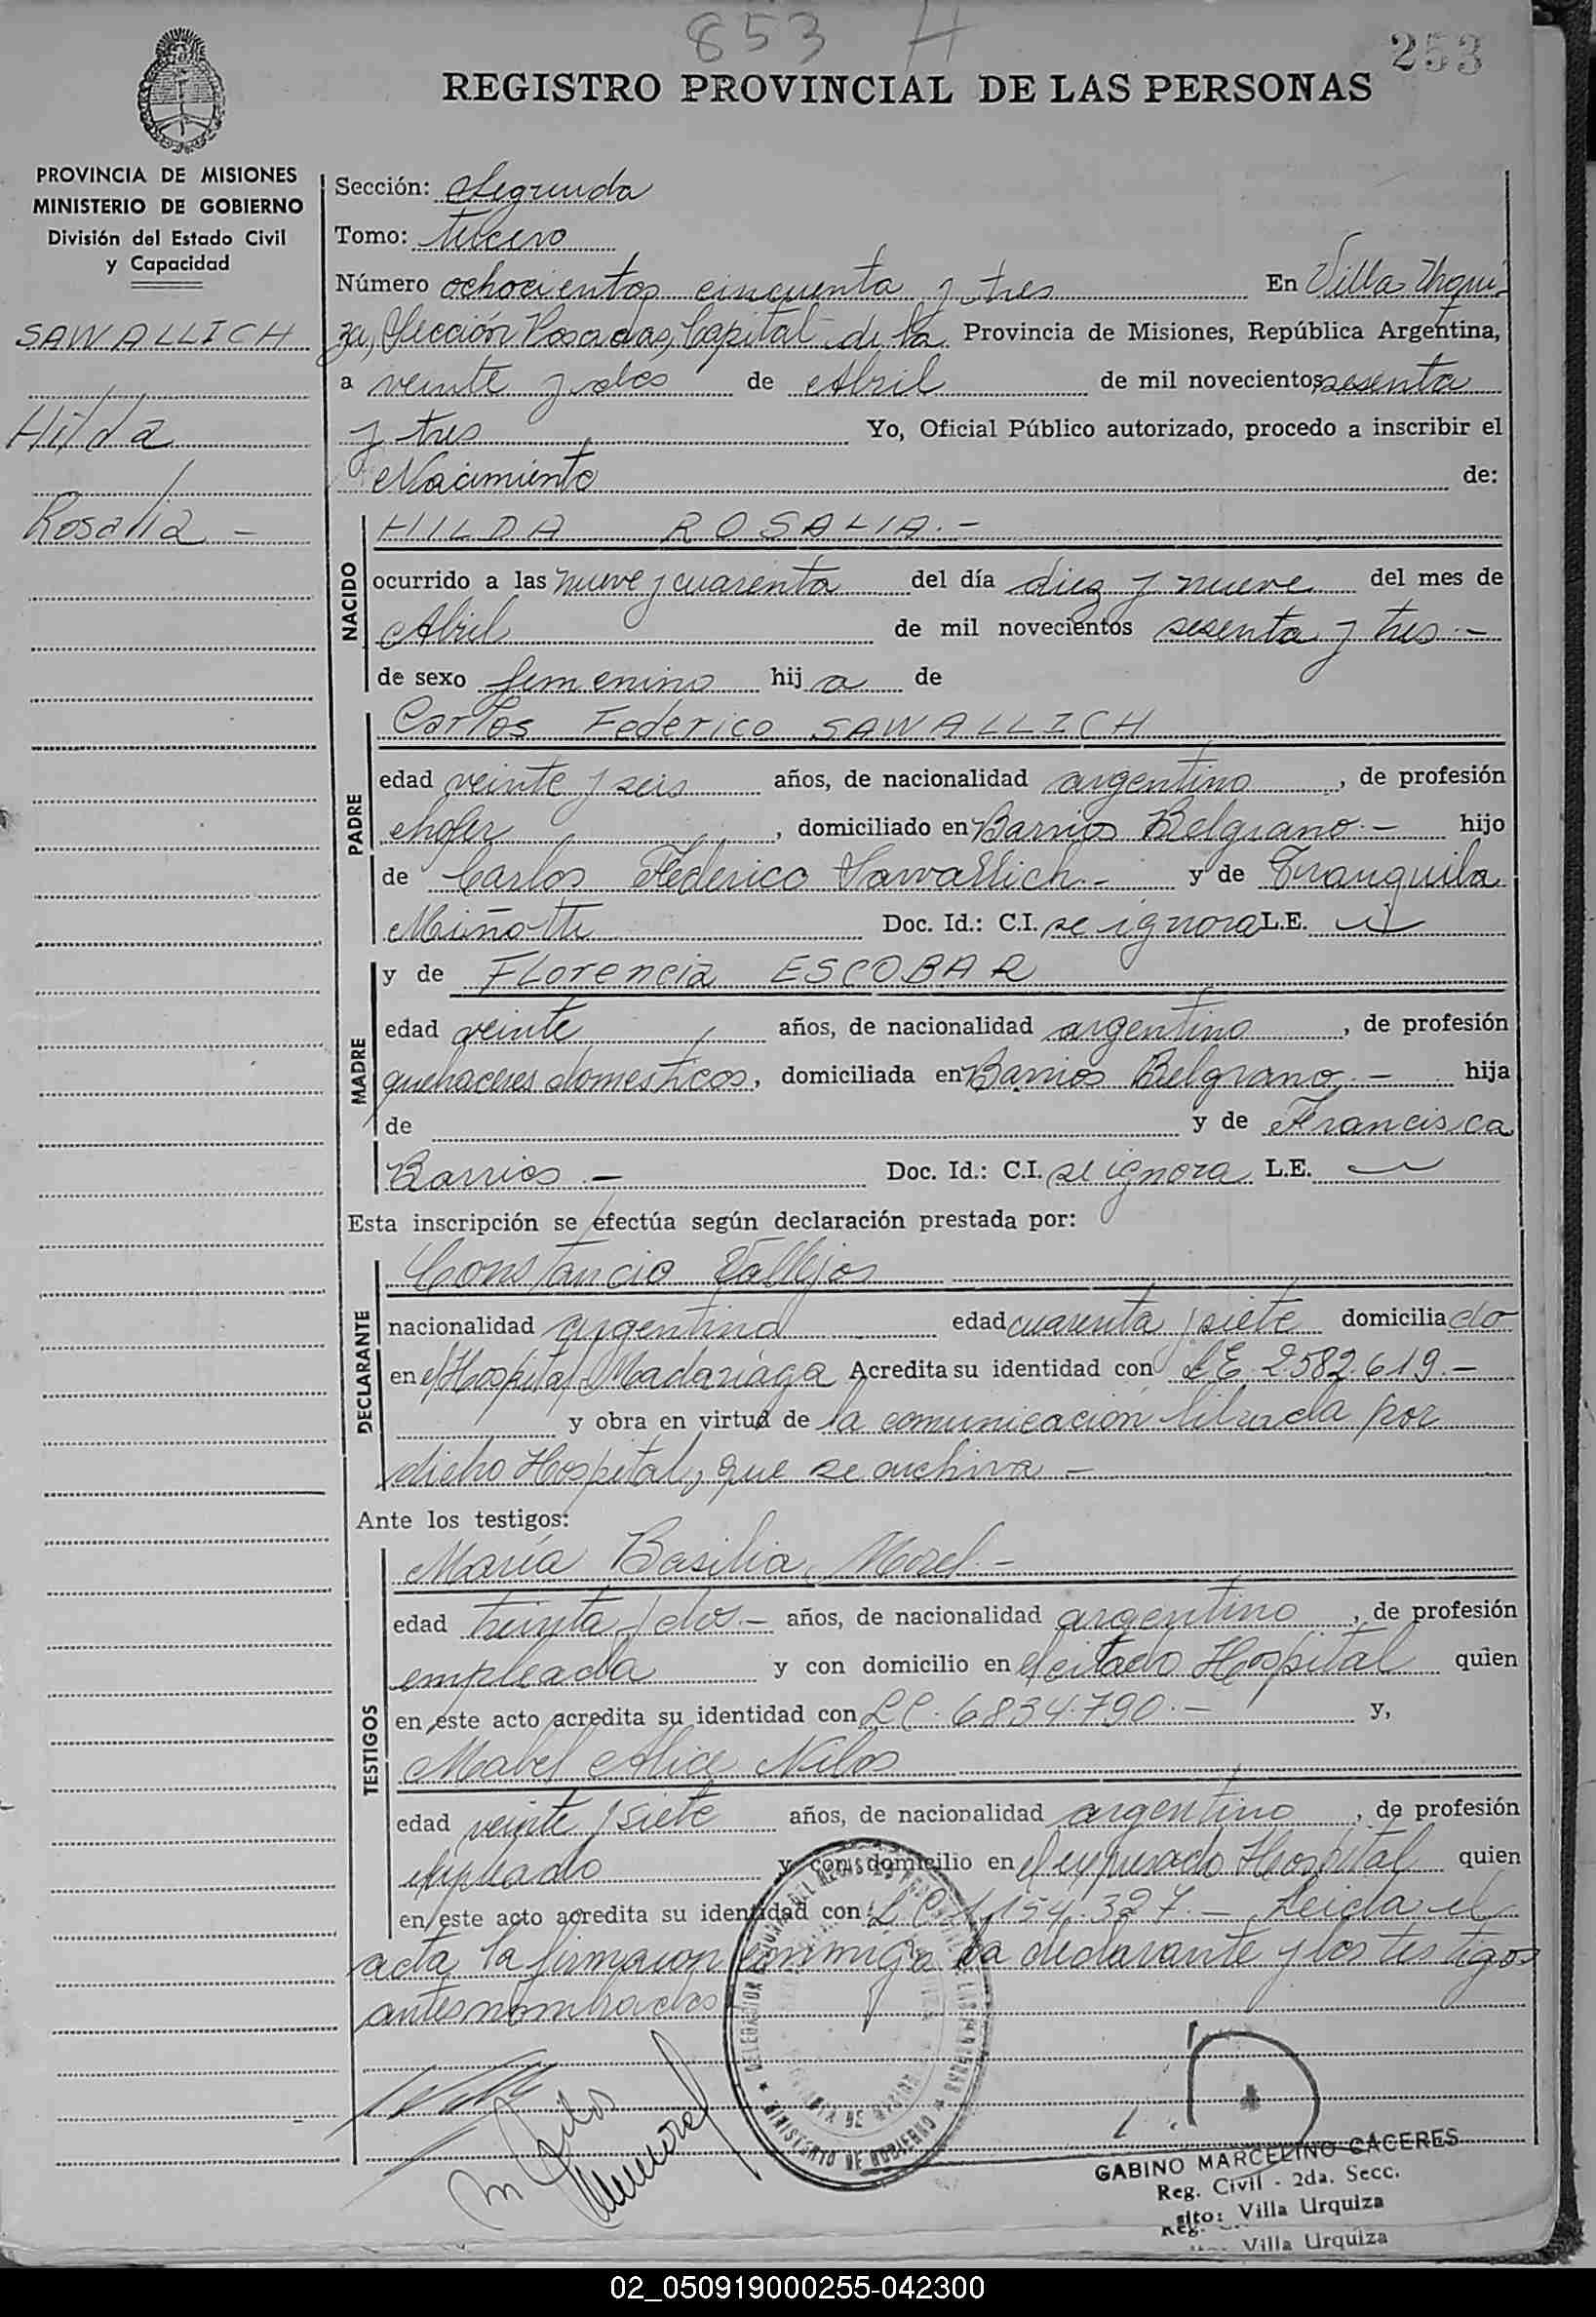 853 H
253
REGISTRO PROVINCIAL DE LAS PERSONAS
PROVINCIA DE MISIONES
MINISTERIO DE GOBIERNO
División del Estado Civil
y Capacidad
SAWALLICH
Hilda
Rosalía -
Sección: Segunda
Tomo: tercero
Número ochocientos cincuenta y tres En Villa Urqui-
za, Sección Posadas, Capital de la Provincia de Misiones, República Argentina,
a veinte y dos de Abril de mil novecientos sesenta
y tres Yo, Oficial Público autorizado, procedo a inscribir el
Nacimiento de:
NACIDO
HILDA ROSALIA.-
ocurrido a las nueve y cuarenta del día diez y nueve del mes de
Abril de mil novecientos sesenta y tres.-
de sexo femenino hija de
PADRE
Carlos Federico SAWALLICH
edad veinte y seis años, de nacionalidad argentino, de profesión
chofer, domiciliado en Barrios Belgrano.- hijo
de Carlos Federico Sawallich.- y de Tranquila
Miñotti Doc. Id.: C.I. se ignora L.E.
MADRE
y de Florencia ESCOBAR
edad veinte años, de nacionalidad argentino, de profesión
quehaceres domesticos, domiciliada en Barrios Belgrano.- hija
de y de Francisca
Barrios.- Doc. Id.: C.I. se ignora L.E.
Esta inscripción se efectúa según declaración prestada por:
DECLARANTE
Constancio Vallejos
nacionalidad argentino edad cuarenta y siete domiciliado
en el Hospital Madariaga Acredita su identidad con LE 2582.619.-
y obra en virtud de la comunicacion librada por
dicho Hospital, que se archiva -
Ante los testigos:
TESTIGOS
María Basilia Morel.-
edad treinta y dos.- años, de nacionalidad argentino, de profesión
empleada y con domicilio en el citado Hospital quien
en este acto acredita su identidad con LC. 6834.790.- y,
Mabel Alice Nilos
edad veinte y siete años, de nacionalidad argentino, de profesión
empleado y con domicilio en el expresado Hospital quien
en este acto acredita su identidad con: LC 1.154.327.- Leida el
acta la firmaron conmigo la declarante y los testigos
antes nombrados
DELEGACION DEL REGISTRO PROVINCIAL DE LAS PERSONAS
MINISTERIO DE GOBIERNO
M Nilos
GABINO MARCELINO CACERES
Reg. Civil - 2da. Secc.
sito: Villa Urquiza
Reg.
Villa Urquiza
02_050919000255-042300